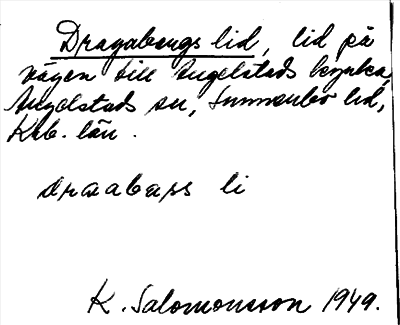 Dragabergs lid, lid på
vägen till Angelstads kyrka,
Angelstads sn, Sunnerbo hd,
Krb. län.
draabærs li
K. Salomonsson 1949.